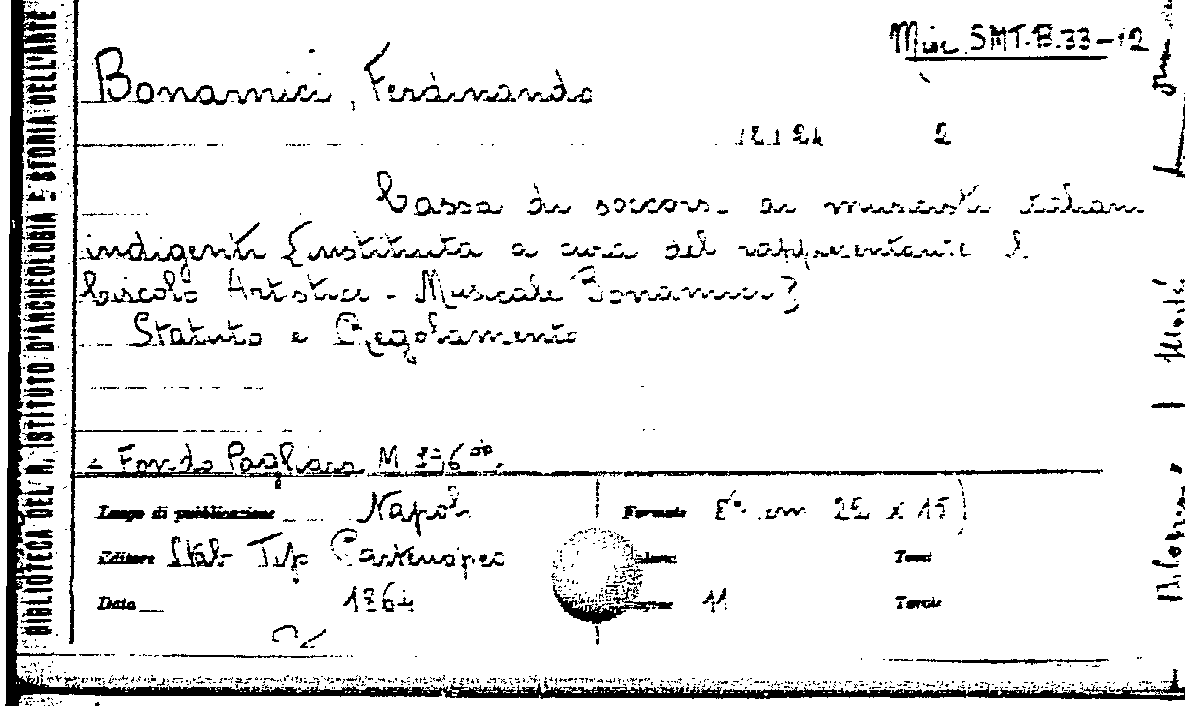 Misc. SMT.B.33-12
Bonamici, Ferdinando
2
Cassa di soccorsi ai musicisti italiani
indigenti [instituita a cura del rappresentante il
Circolo Artistico-Musicale Bonamici]
Statuto e Regolamento
- Fondo Pagliara M
Luogo di pubblicazione Napoli Formato 8° cm 22 x 15
Editore Stab. Tip. Partenopeo Volumi Tomi
Data 1864 Pagine 11 Tavole
BIBLIOTECA DEL R. ISTITUTO D'ARCHEOLOGIA E STORIA DELL'ARTE